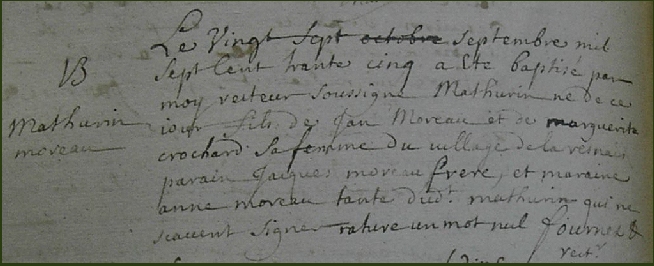 B
Mathurin
moreau
Le Vingt sept octobre septembre mil
sept Cent trante cinq a Eté baptisé par
moy recteur soussigné Mathurin né de ce
iour fils de Jan Moreau et de marguerita
crochard sa femme du village de la
parain Jacques moreau frere, et maraine
anne moreau tante dud.t mathurin qui ne
scavent signer rature un mot nul fournex
rect.r